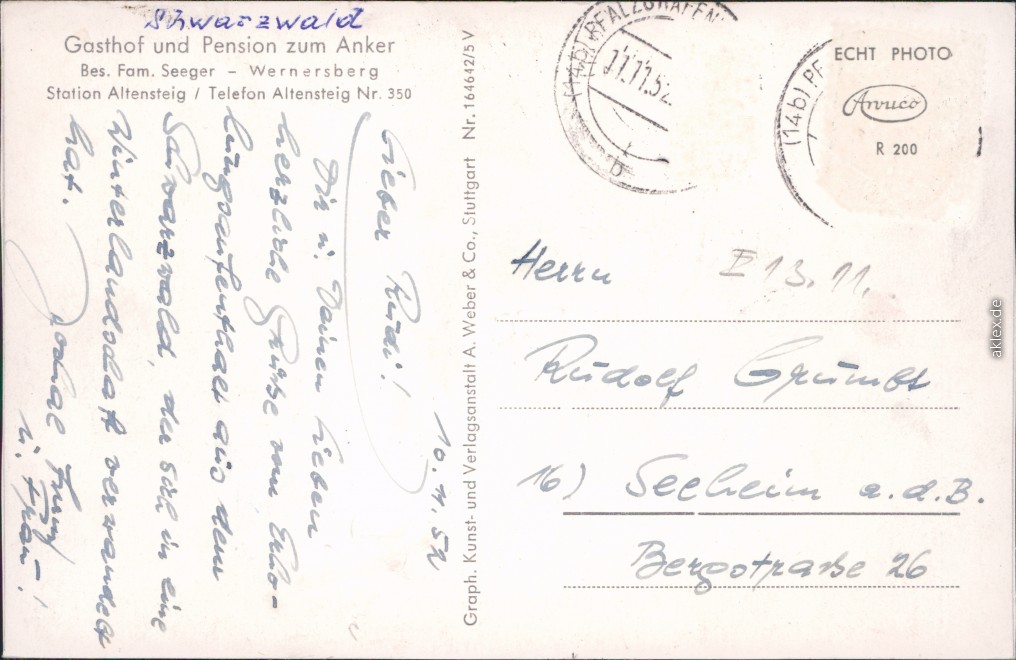 Schwarzwald
Gasthof und Pension zum Anker
Bes. Fam. Seeger – Wernersberg
Station Altensteig / Telefon Altensteig Nr. 350
10.11.52
Lieber Rudi!
Dir u. Deinen Lieben
herzliche Grüße vom Erho-
lungsaufenthalt aus dem
Schwarzwald, der sich in eine
Winterlandschaft verwandelt
hat.
u. Frau!
Graph. Kunst- und Verlagsanstalt A. Weber & Co., Stuttgart Nr. 164642/5 V
(14b) PFALZGRAFEN
11.11.52.
b
(14b) PF
ECHT PHOTO
Arvuco
R 200
Herrn
I 13.11.
Rudolf
16) Seeheim a.d.B.
Bergstraße 26
aklex.de